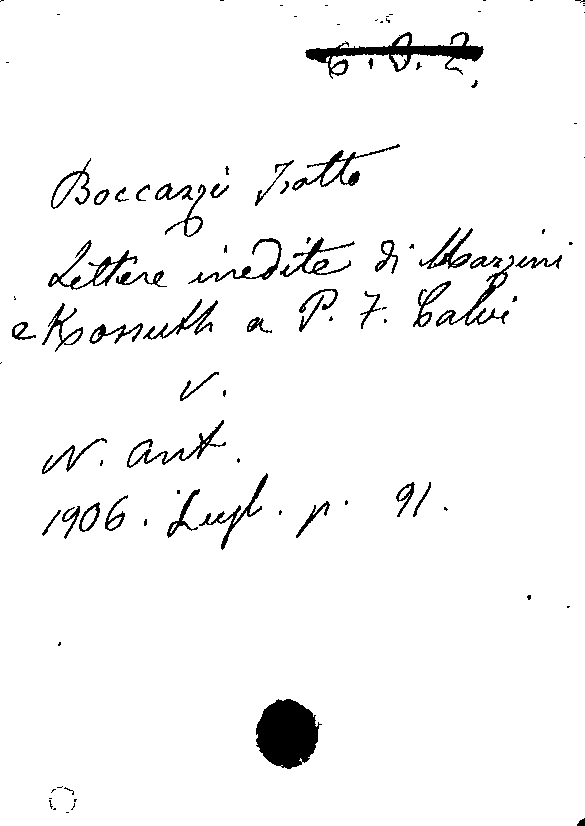 6. D. 2.
Boccazzi Isotto
Lettere inedite di Mazzini
e Kossuth a P. F. Calvi
V.
N. Ant.
1906. Lugl. p. 91.